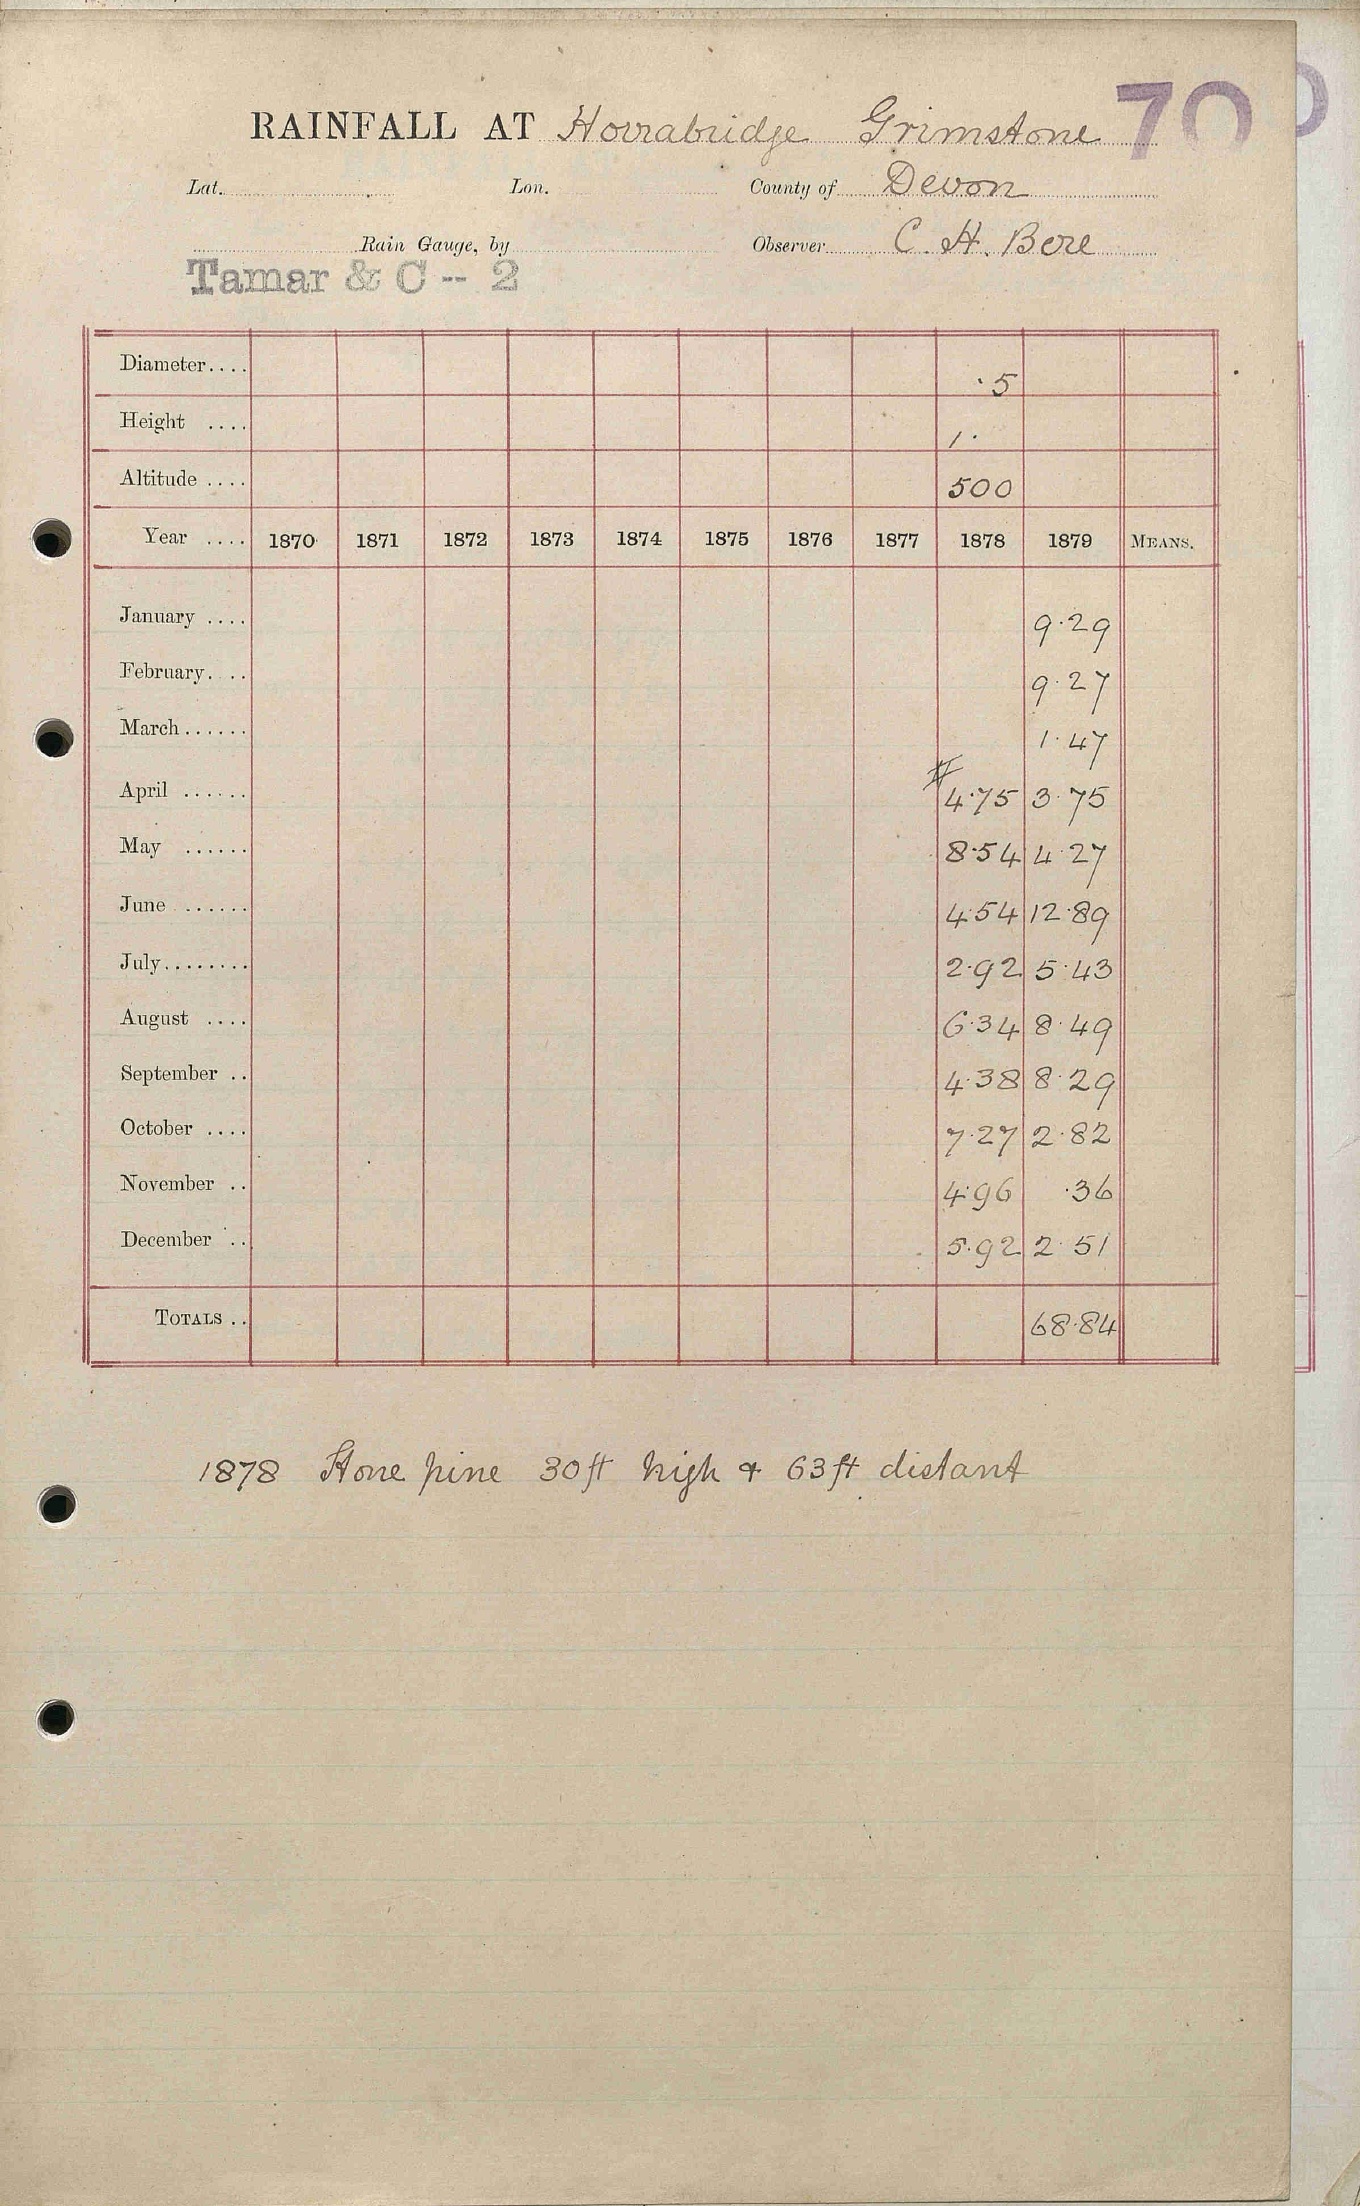 RAINFALL AT Horrabridge Grimstone 70
Lat. Lon. County of Devon
Rain Gauge, by Observer C. H. Bere
Tamar & C -- 2
Diameter.... ·5
Height .... 1·
Altitude .... 500
Year .... 1870 1871 1872 1873 1874 1875 1876 1877 1878 1879 MEANS.
January .... 9·29
February. ... 9·27
March...... 1·47
April ...... # 4·75 3·75
May ...... 8·54 4·27
June ...... 4·54 12·89
July........ 2·92 5·43
August .... 6·34 8·49
September .. 4·38 8·29
October .... 7·27 2·82
November .. 4·96 ·36
December .. 5·92 2·51
TOTALS .. 68·84
1878 Stone pine 30ft high & 63ft distant